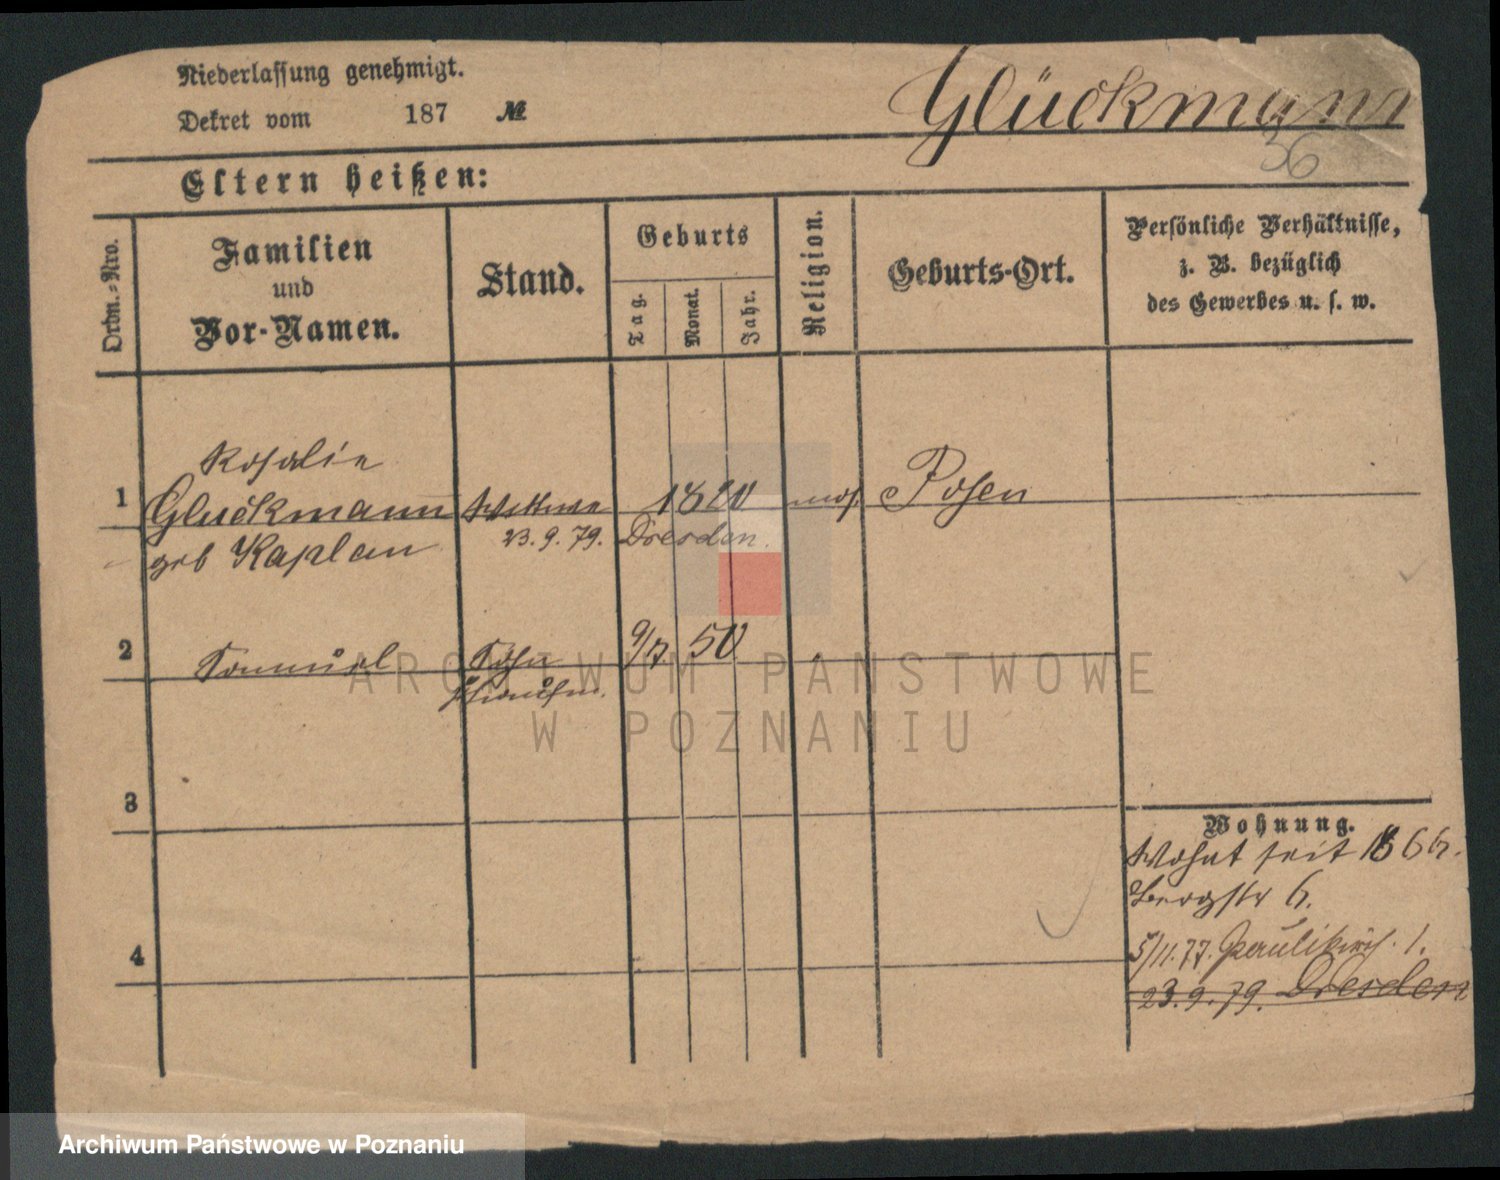 Niederlassung genehmigt.
Dekret vom 187 №
Glückmann
36
Eltern heißen:
Ordn.-Nro.
Familien
und
Vor-Namen.
Stand.
Geburts
Tag.
Monat.
Jahr.
Religion.
Geburts-Ort.
Persönliche Verhältnisse,
z. B. bezüglich
des Gewerbes u. s. w.
Rosalie
1 Gluckmann Wittwe 1820 mos. Posen
geb Kaplan 23.9.79. Dresden.
2 Samuel Sohn 9/7 50
ARCHIWUM PAŃSTWOWE
W POZNANIU
3
4
Wohnung.
Wohnt seit 1866.
Bergstr 6.
5/11.77. Paulikirch. 1.
23.9.79. Dresden
Archiwum Państwowe w Poznaniu